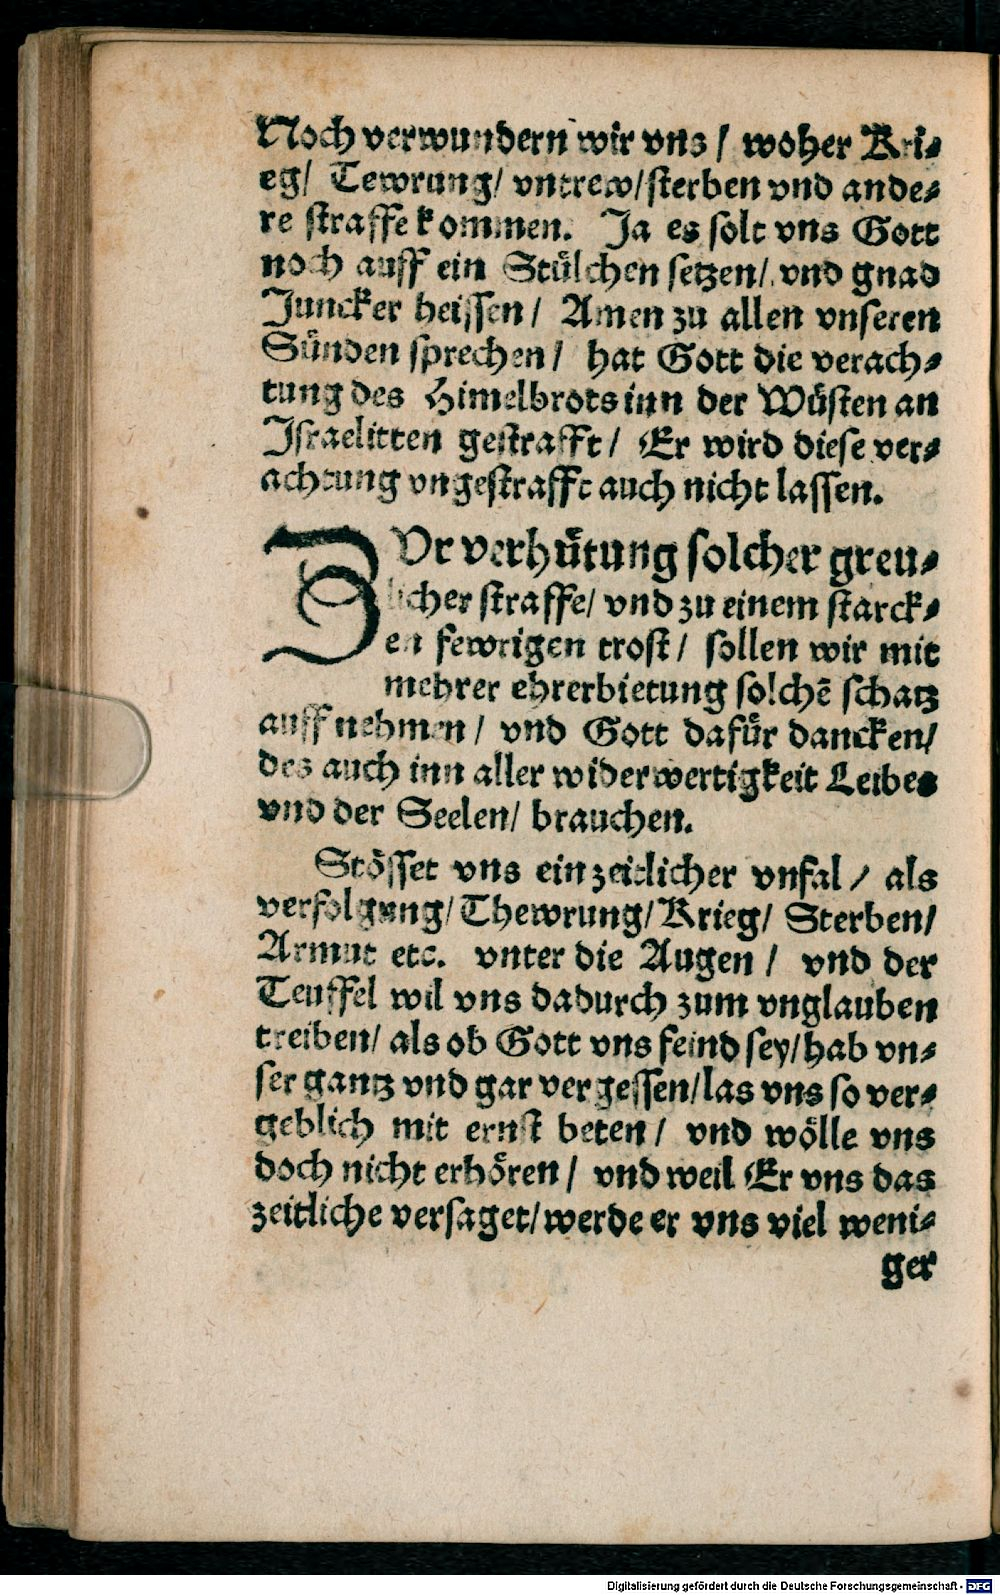 Noch verwundern wir vns / woher Kri⸗
eg/ Tewrung/ vntrew/sterben vnd ande⸗
re straffe kommen. Ja es solt vns Gott
noch auff ein Stülchen setzen/ vnd gnad
Juncker heissen / Amen zu allen vnseren
Sünden sprechen / hat Gott die verach⸗
tung des Himelbrots inn der Wüsten an
Israelitten gestrafft / Er wird diese ver⸗
achtung vngestrafft auch nicht lassen.
ZVr verhütung solcher greu⸗
licher straffe/ vnd zu einem starck⸗
en fewrigen trost / sollen wir mit
mehrer ehrerbietung solchē schatz
auffnehmen / vnd Gott dafür dancken/
des auch inn aller widerwertigkeit Leibes
vnd der Seelen/ brauchen.
Stösset vns ein zeitlicher vnfal / als
verfolgung/ Thewrung/ Krieg/ Sterben/
Armut etc. vnter die Augen / vnd der
Teuffel wil vns dadurch zum vnglauben
treiben/ als ob Gott vns feind sey/hab vn⸗
ser gantz vnd gar vergessen/las vns so ver⸗
geblich mit ernst beten / vnd wölle vns
doch nicht erhören / vnd weil Er vns das
zeitliche versaget/werde er vns viel weni⸗
ger
Digitalisierung gefördert durch die Deutsche Forschungsgemeinschaft - DFG